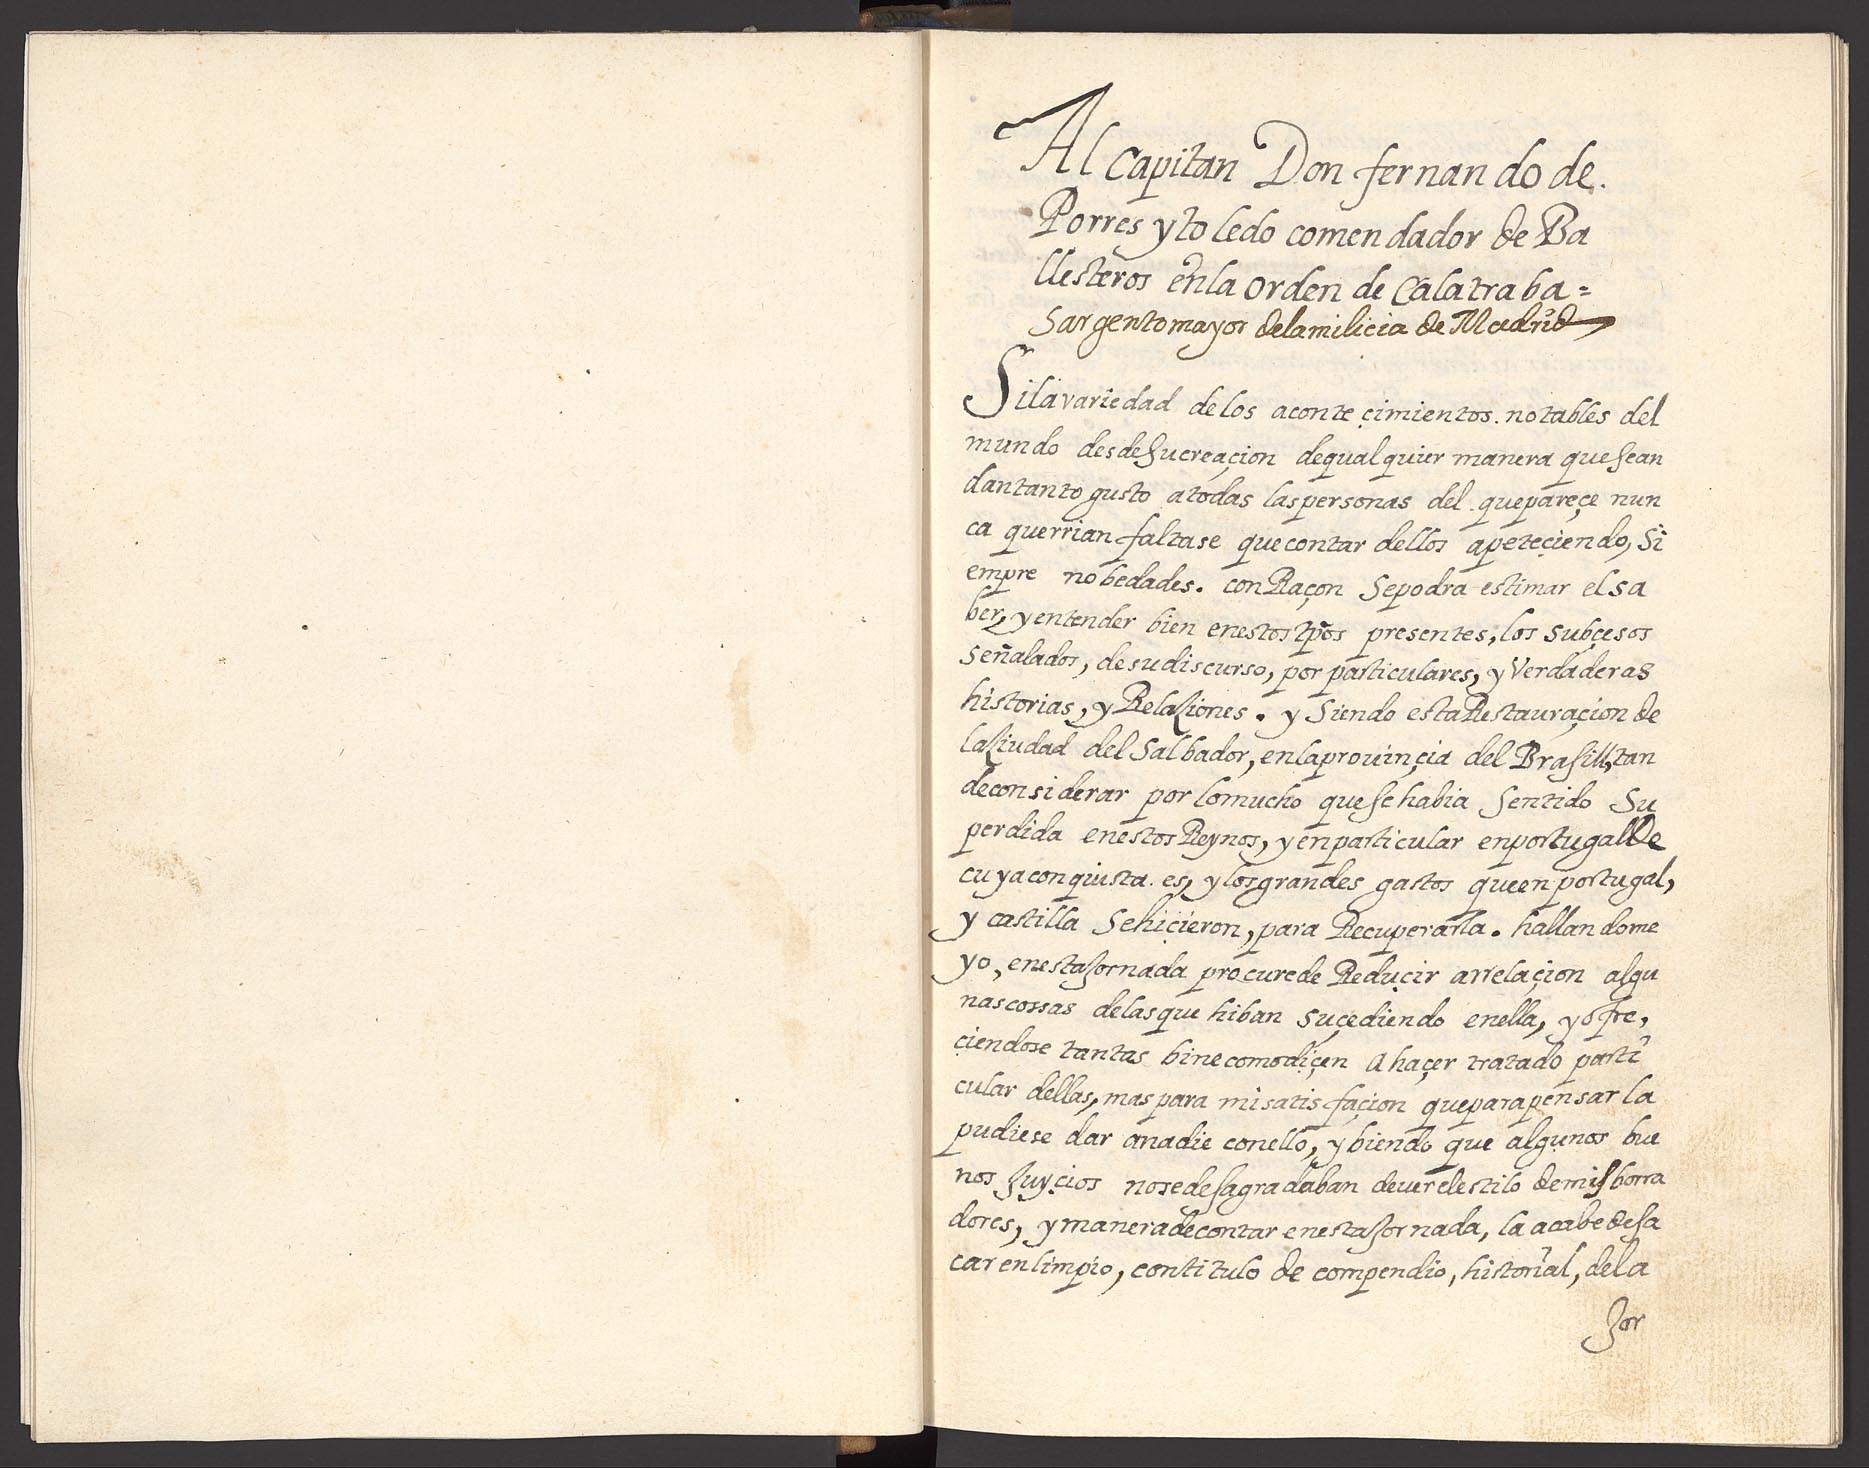 Al Capitan Don fernando de.
Porres y toledo comendador de Ba
llesteros en la orden de Calatraba =
Sargento mayor de la milicia de Madrid
Si la variedad de los aconteçimientos. notables del
mundo desde su creaçion de qualquier manera que sean
dan tanto gusto a todas las personas del. que pareçe nun
ca querrian faltase que contar dellos apeteçiendo, Si
empre nobedades. con Raçon Se podra estimar el sa
ber, y entender bien en estos tpõs presentes, los subçesos
señalados, de su discurso, por particulares, y Verdaderas
historias, y Relaziones. y Siendo esta Restauraçion de
la ziudad del Salbador, en la prouinçia del Brasill, tan
de considerar por lo mucho que se habia sentido Su
perdida en estos Reynos, y en particular en portugal De
cuya conquista. es, y los grandes gastos que en portugal,
y castilla Se hiçieron, para Recuperarla. hallandome
yo, en esta Jornada procure de Reduçir a rrelaçion algu
nas cossas de las que hiban suçediendo en ella, y ofre,
çiendose tantas bine como diçen a haçer tratado parti
cular dellas, mas para mi satisfaçion que para pensar la
pudiese dar a nadie con ello, y biendo que algunos bue
nos Juyçios no se desagradaban de uer el estilo de mis borra
dores, y manera de contar en esta Jornada, la acabe de sa
car en limpio, con titulo de compendio, historial, de la
Jor